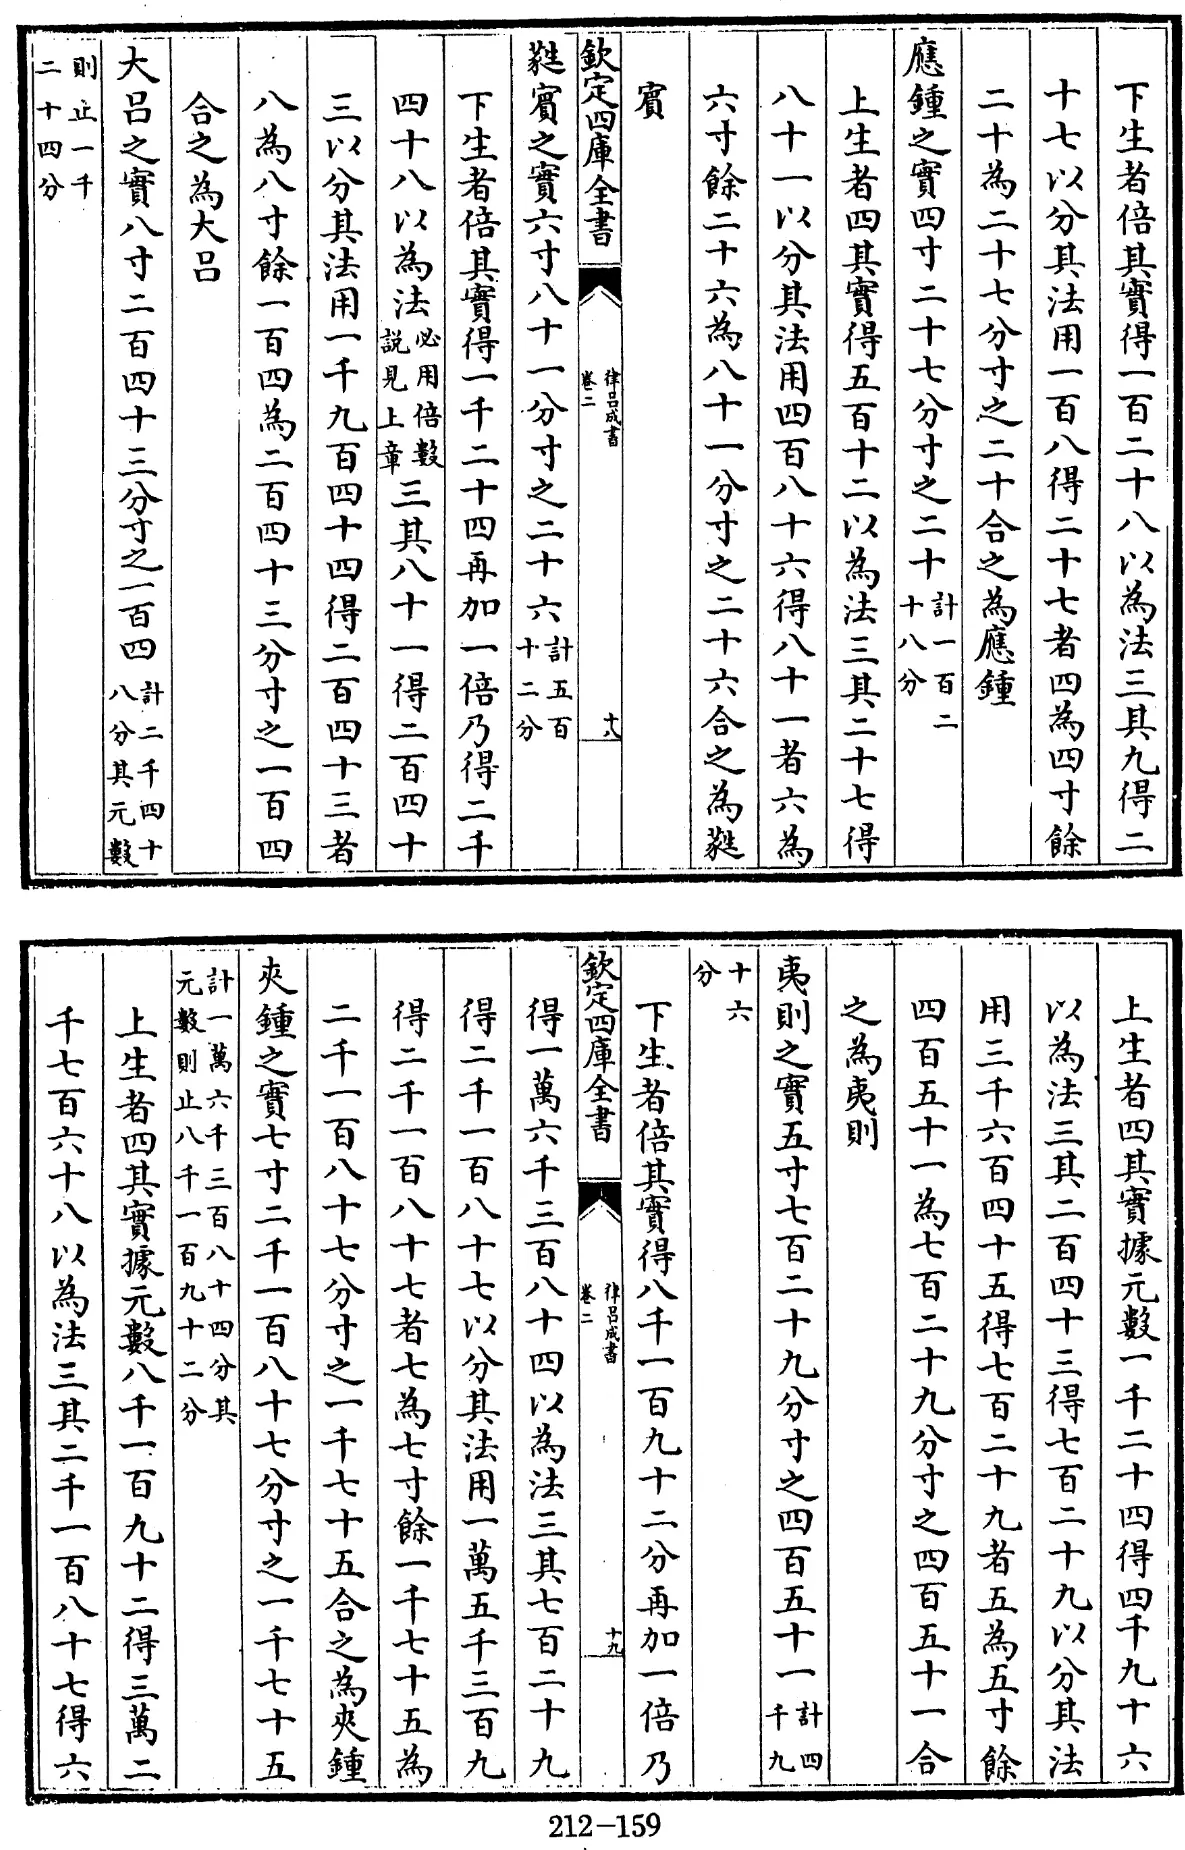 下生者倍其實得一百二十八以為法三其九得二
十七以分其法用一百八得二十七者四為四寸餘
二十為二十七分寸之二十合之為應鍾
應鍾之實四寸二十七分寸之二十計一百二十八分
上生者四其實得五百十二以為法三其二十七得
八十一以分其法用四百八十六得八十一者六為
六寸餘二十六為八十一分寸之二十六合之為蕤
賓
欽定四庫全書 律呂成書 卷二 十八
蕤賓之實六寸八十一分寸之二十六計五百十二分
下生者倍其實得一千二十四再加一倍乃得二千
四十八以為法必用倍數說見上章三其八十一得二百四十
三以分其法用一千九百四十四得二百四十三者
八為八寸餘一百四為二百四十三分寸之一百四
合之為大呂
大呂之實八寸二百四十三分寸之一百四計二千四十八分其元數
則止一千二十四分
上生者四其實據元數一千二十四得四千九十六
以為法三其二百四十三得七百二十九以分其法
用三千六百四十五得七百二十九者五為五寸餘
四百五十一為七百二十九分寸之四百五十一合
之為夷則
夷則之實五寸七百二十九分寸之四百五十一計四千九
十六分
下生者倍其實得八千一百九十二分再加一倍乃
欽定四庫全書 律呂成書 卷二 十九
得一萬六千三百八十四以為法三其七百二十九
得二千一百八十七以分其法用一萬五千三百九
得二千一百八十七者七為七寸餘一千七十五為
二千一百八十七分寸之一千七十五合之為夾鍾
夾鍾之實七寸二千一百八十七分寸之一千七十五
計一萬六千三百八十四分其元數則止八千一百九十二分
上生者四其實據元數八千一百九十二得三萬二
千七百六十八以為法三其二千一百八十七得六
212-159